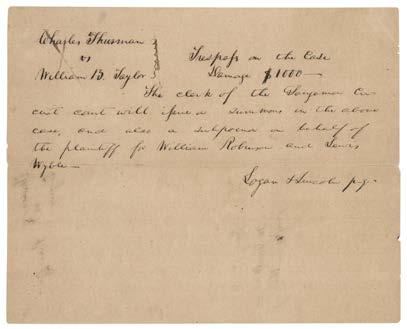 Charles Thurman
vs
William B. Taylor
Trespass on the Case
Damage $1000—
The clerk of the Sangamon Cir
cuit court will issue a summons in the above
case, and also a subpoena on behalf of
the plaintiff for William Robinson and Lewis
Wyble—
Logan & Lincoln p.q.